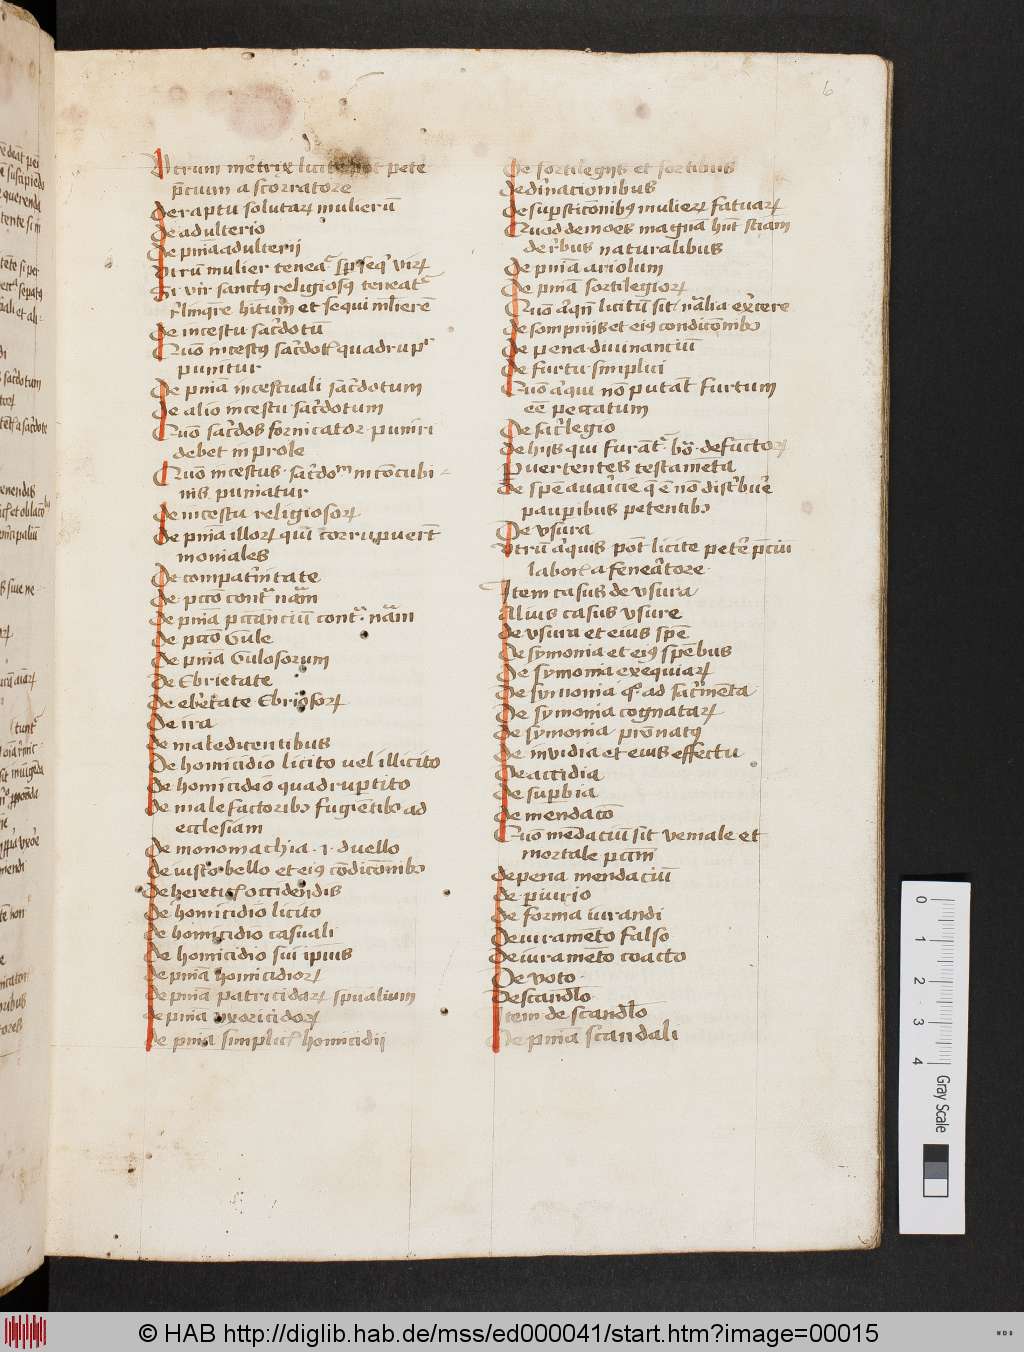 6
Vtrum mēt̄rix licite pōt petē
p̄cium a scorratore
De raptu solutaꝝ mulierū
De adulterio
De pn̄ia adulterii
Vtrū mulier tenea͛ spe seq̄ virū
Si vir sanctꝯ religiosꝯ teneat͛
rͥlinq̄re hitum et sequi mlierē
De incestu sac̄dotū
Quō incestꝯ sac̄dotꝭ quadrupͬ
punitur
De pn̄ia incestuali sac̄dotum
De alio incestu sac̄dotum
Quō sac̄dos fornicator puniri
debet in prole
Quō incestus sac̄doᵐ in cōcubi
nis puniatur
De incestu religiosoꝝ
De pn̄ia illoꝝ qui cōrrupuer̄t
moniales
De compat̄nitate
De pctō contͣ nāͣm
De pn̄ia peccanciū contͣ nāͣm
De pctō Gule
De pn̄ia Gulosorum
De Ebrietate
De eb̄etate Ebriosoꝝ
De ira
De maledicentibus
De homicidio licito vel illicito
De homicidio quadruptito
De malefactoribꝰ fugiētibꝰ ad
ecclesiam
De monomachia .i. duello
De iusto bello et eiꝯ cōdicōnibꝰ
De heretiꝭ occidendis
De homicidio licito
De homicidio casuali
De homicidio sui ipius
De pn̄ia homicidioꝝ
De pn̄ia patricidaꝝ spūalium
De pn̄ia vxoricidoꝝ
De pn̄ia simplicꝭ homicidii
De sortilegiis et sortibus
De diͥnacionibus
De suꝑsticōnibꝯ mulieꝝ fatuaꝝ
Quod demoēs magnā hn̄t sciām
de rͤbus naturalibus
De pn̄ia ariolum
De pn̄ia sortilegioꝝ
Quō aͥqn̄ licitū sit nͣalia ex̄cere
De sompniis et eiꝯ condicōnibꝰ
De pena diuinanciū
De furtu simplici
Quō aͥqui nō putāt furtum
eē pecatum
De sac̄legio
De hijs qui furāt͛ bō defūctoꝝ
Puertentes testamēta
De spē auaͥcie q̄ ē nō distͥbuͤe
pauꝑibus petentibꝰ
De vsura
Vtrū aͥquis pōt licite petē p̄ciū
laboꝭ a feneͣtore
Item casus de vsura
Alius casus vsure
De vsura et eius spē
De symonia et eiꝯ spēbus
De symonia exequiaꝝ
De symonia qͦ ad sac̄mēta
De symonia cognataꝝ
De symonia pronatꝯ
De invidia et eius effectu
De accidia
De suꝑbia
De mendacō
Quō mēdaciū sit veniale et
mortale pctm̄
De pena mendaciū
De ꝑiurio
De forma iurandi
De iuramēto falso
De iuramēto coacto
De voto
De scandlō
Item de scandlō
De pn̄ia scandali
0 1 2 3 4 Gray Scale
© HAB http://diglib.hab.de/mss/ed000041/start.htm?image=00015